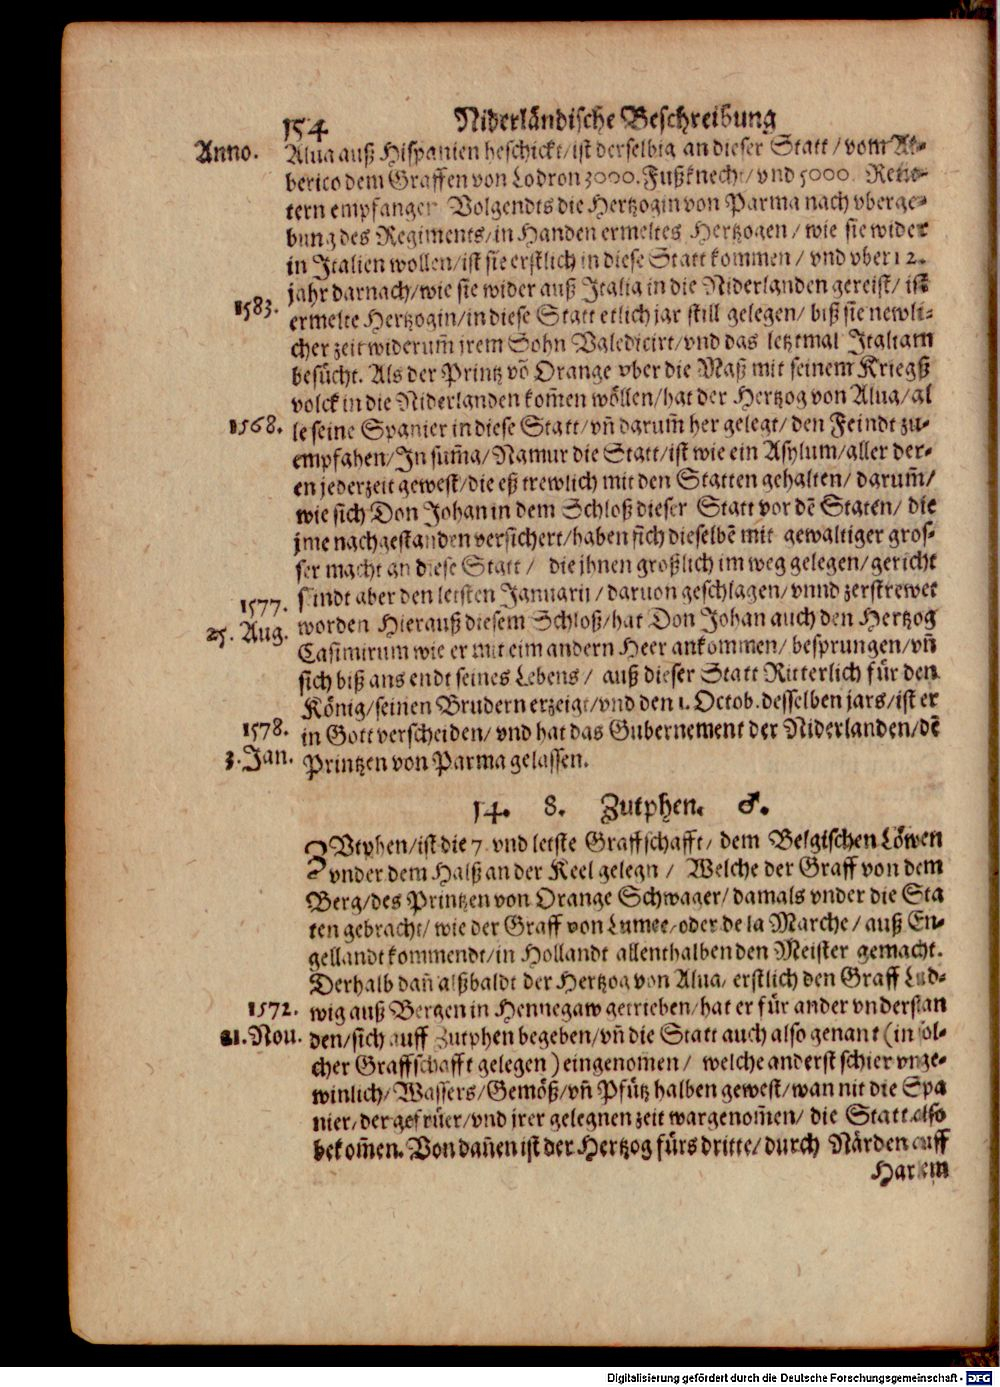 154 Niderländische Beschreibung
Anno. Alua auß Hispanien beschickt/ist derselbig an dieser Statt/vom Al-
berico dem Graffen von Lodron 3000. Fußknecht/vnd 5000. Reut-
tern empfangen Volgendts die Hertzogin von Parma nach vberge-
bung des Regiments/in Handen ermeltes Hertzogen/wie sie wider
in Italien wollen/ist sie erstlich in diese Statt kommen/vnd vber 12.
jahr darnach/wie sie wider auß Italia in die Niderlanden gereist/ist
1583. ermelte Hertzogin/in diese Statt etlich jar still gelegen/biß sie newli-
cher zeit widerum̃ jrem Sohn Valedicirt/vnd das letztmal Italiam
besücht. Als der Printz võ Orange vber die Maß mit seinem Kriegß
volck in die Niderlanden kom̃en wöllen/hat der Hertzog von Alua/al
1568. le seine Spanier in diese Statt/vñ darum̃ her gelegt/den Feindt zu-
empfahen/In sum̃a/Namur die Statt/ist wie ein Asylum/aller der-
en jederzeit gewest/die eß trewlich mit den Statten gehalten/darum̃/
wie sich Don Johan in dem Schloß dieser Statt vor dẽ Staten/die
jme nachgestanden versichert/haben sich dieselbẽ mit gewaltiger gros-
ser macht an diese Statt/ die jhnen größlich im weg gelegen/gericht
1577. sindt aber den letsten Januarii/daruon geschlagen/vnnd zerstrewet
25. Aug. worden Hierauß diesem Schloß/hat Don Johan auch den Hertzog
Casimirum wie er mit eim andern Heer ankommen/besprungen/vñ
sich biß ans endt seines Lebens/ auß dieser Statt Ritterlich für den
König/seinen Brudern erzeigt/vnd den 1. Octob. desselben jars/ist er
1578. in Gott verscheiden/vnd hat das Gubernement der Niderlanden/dẽ
3. Jan. Printzen von Parma gelassen.
14. 8. Zutphen. ♂.
ZVtphen/ist die 7. vnd letste Graffschafft/dem Belgischen Löwen
vnder dem Halß an der Keel gelegn/ Welche der Graff von dem
Berg/des Printzen von Orange Schwager/damals vnder die Sta
ten gebracht/wie der Graff von Lumee/oder de la Marche/auß En-
gellandt kommendt/in Hollandt allenthalben den Meister gemacht.
Derhalb dañ alßbaldt der Hertzog von Alua/erstlich den Graff Lud-
1572. wig auß Bergen in Hennegaw getrieben/hat er für ander vnderstan
21. Nou. den/sich auff Zutphen begeben/vñ die Statt auch also genant (in sol-
cher Graffschafft gelegen) eingenom̃en/ welche anderst schier vnge-
winlich/Wassers/Gemöß/vñ Pfütz halben gewest/wan nit die Spa
nier/der gefrüer/vnd jrer gelegnen zeit wargenom̃en/die Statt also
bekom̃en. Von dañen ist der Hertzog fürs dritte/durch Närden auff
Harlem
Digitalisierung gefördert durch die Deutsche Forschungsgemeinschaft - DFG